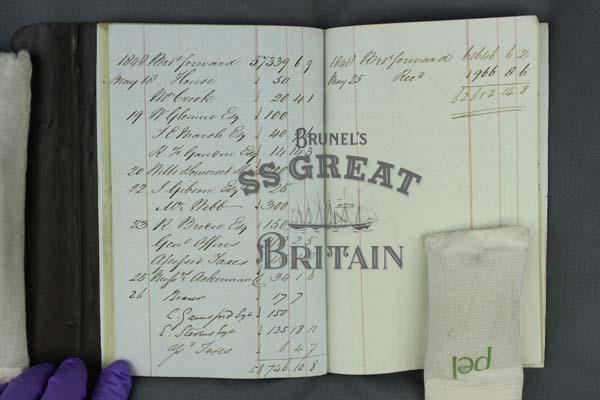 1848 Brot forward 57339 6 9
May 18 House 50
Mr Crook 20 4 1
19 W Glennie Esq 100
T E Marsh Esq 40
R F Gandell Esq 14 14 3
20 Wilts Somerset
22 J Gibson Esq 25
Mr Webb 300
23 R Brodie Esq 150
Genl Offices 2 5
Assessed Taxes
25 Messrs Ackermann 34 1 6
26 Bearer 17 7
C. Gainsford Esqe 150
C. Stevens Esqe 135 18 11
Taxes 6 4 7
58746 10 8
1848 Brot forward 61646 6 2
May 25 Recd 1966 8 6
62612 14 8
BRUNEL'S
SS GREAT
BRITAIN
pel